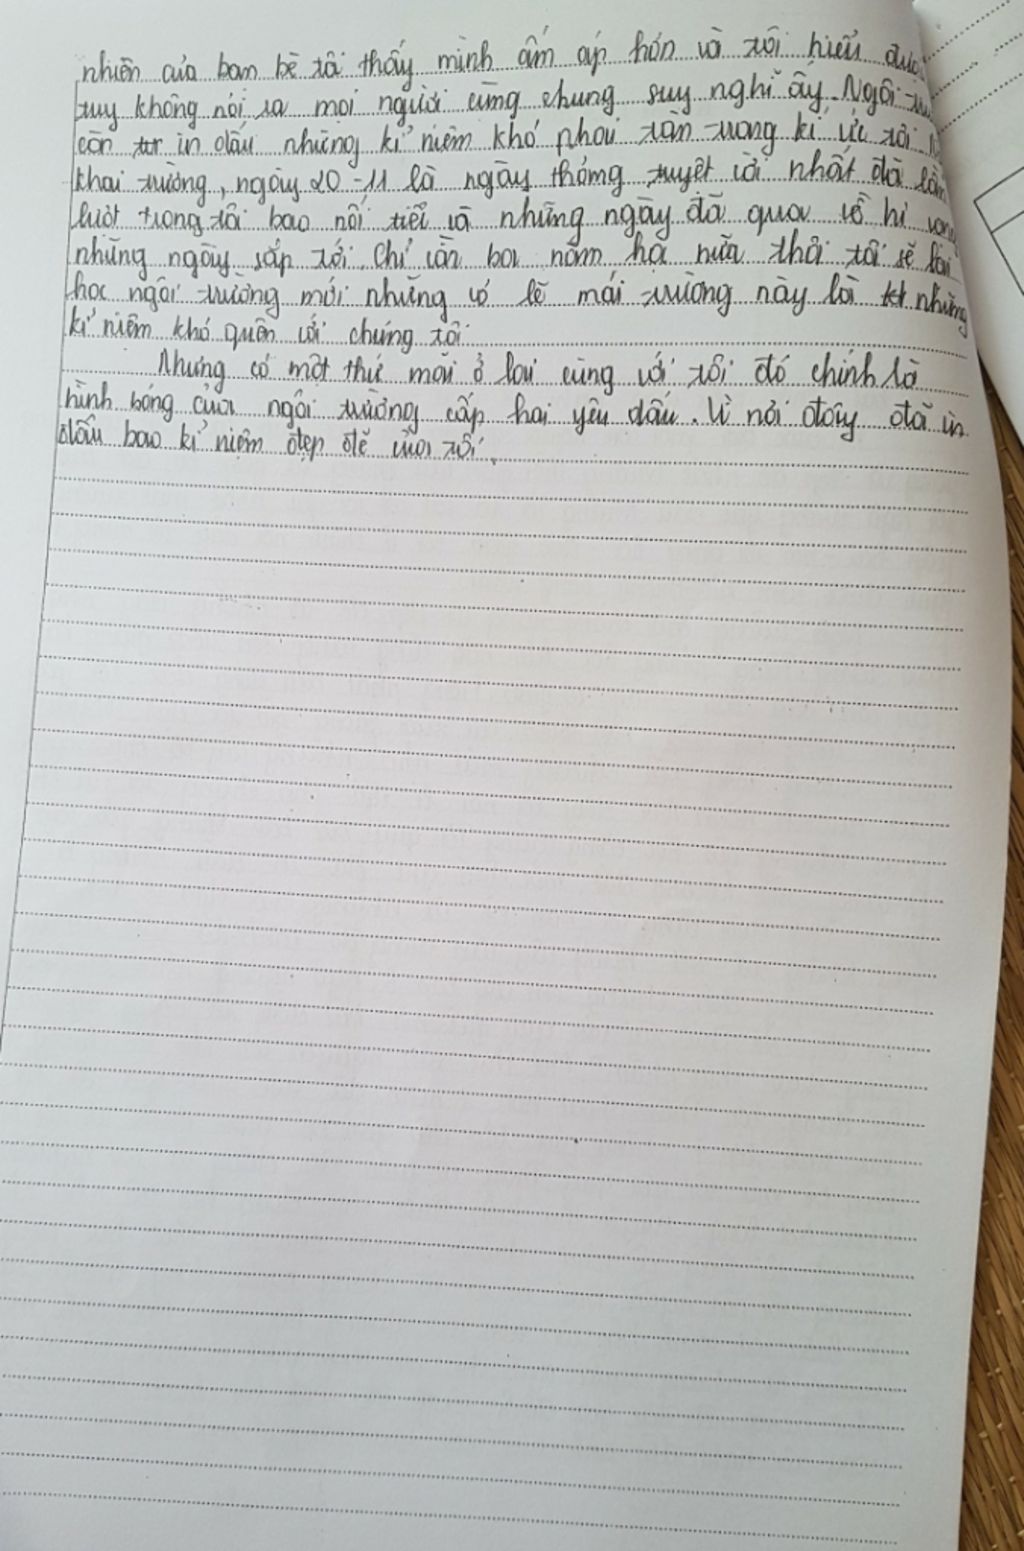 nhiên của bạn bè tôi thấy mình ấm áp hơn và tôi hiểu được
tuy không nói ra mọi người cũng chung suy nghĩ ấy. Ngôi
còn in dấu những kỉ niệm khó phai tàn trong kí ức tôi
khai trường, ngày 20-11 là ngày tháng tuyệt vời nhất đã lần
lượt trong tôi bao nối tiếp và những ngày đã qua về hi vọng
những ngày sắp tới. Chỉ cần ba năm nữa thôi tôi sẽ
học ngôi trường mới nhưng có lẽ mái trường này là những
kỉ niệm khó quên với chúng tôi
Nhưng có một thứ mãi ở lại cùng với tôi đó chính là
hình bóng của ngôi trường cấp hai yêu dấu. Vì nơi đây đã in
dấu bao kỉ niệm đẹp đẽ của tôi.